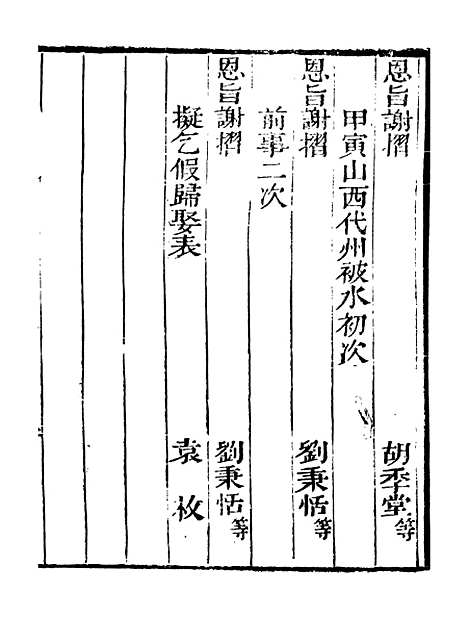 恩旨謝摺 胡季堂等
甲寅山西代州被水初次
恩旨謝摺 劉秉恬等
前事二次
恩旨謝摺 劉秉恬等
擬乞假歸娶表 袁枚